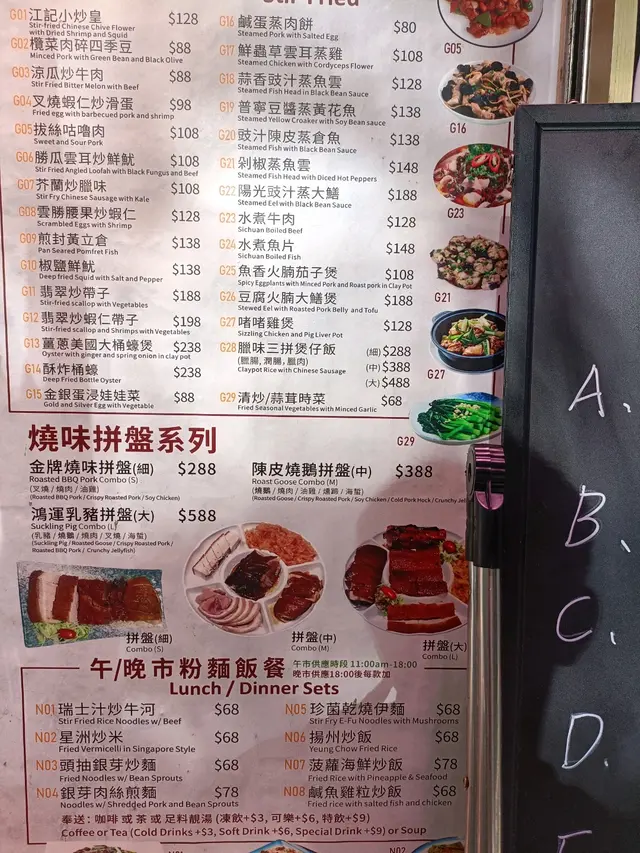 Stir Fried
G01 江記小炒皇 $128
Stir-fried Chinese Chive Flower
with Dried Shrimp and Squid
G02 欖菜肉碎四季豆 $88
Minced Pork with Green Bean and Black Olive
G03 涼瓜炒牛肉 $88
Stir Fried Bitter Melon with Beef
G04 叉燒蝦仁炒滑蛋 $98
Fried egg with barbecued pork and shrimp
G05 拔絲咕嚕肉 $108
Sweet and Sour Pork
G06 勝瓜雲耳炒鮮魷 $108
Stir Fried Angled Loofah with Black Fungus and Beef
G07 芥蘭炒臘味 $108
Stir Fry Chinese Sausage with Kale
G08 雲勝腰果炒蝦仁 $128
Scrambled Eggs with Shrimp
G09 煎封黃立倉 $138
Pan Seared Pomfret Fish
G10 椒鹽鮮魷 $138
Deep fried Squid with Salt and Pepper
G11 翡翠炒帶子 $188
Stir-fried scallop with Vegetables
G12 翡翠炒蝦仁帶子 $198
Stir-fried scallop and Shrimps with Vegetables
G13 薑蔥美國大桶蠔煲 $238
Oyster with ginger and spring onion in clay pot
G14 酥炸桶蠔 $238
Deep Fried Bottle Oyster
G15 金銀蛋浸娃娃菜 $88
Gold and Silver Egg with Vegetable
G16 鹹蛋蒸肉餅 $80
Steamed Pork with Salted Egg
G17 鮮蟲草雲耳蒸雞 $108
Steamed Chicken with Cordyceps Flower
G18 蒜香豉汁蒸魚雲 $128
Steamed Fish Head in Black Bean Sauce
G19 普寧豆醬蒸黃花魚 $138
Steamed Yellow Croaker with Soy Bean sauce
G20 豉汁陳皮蒸倉魚 $138
Steamed Fish with Black Bean Sauce
G21 剁椒蒸魚雲 $148
Steamed Fish Head with Diced Hot Peppers
G22 陽光豉汁蒸大鱔 $188
Steamed Eel with Black Bean Sauce
G23 水煮牛肉 $128
Sichuan Boiled Beef
G24 水煮魚片 $148
Sichuan Boiled Fish
G25 魚香火腩茄子煲 $108
Spicy Eggplants with Minced Pork and Roast pork in Clay Pot
G26 豆腐火腩大鱔煲 $188
Stewed Eel with Roasted Pork Belly and Tofu
G27 啫啫雞煲 $128
Sizzling Chicken and Pig Liver Pot
G28 臘味三拼煲仔飯 (細) $288
(臘腸, 潤腸, 臘肉) (中) $388
Claypot Rice with Chinese Sausage
(大) $488
G29 清炒/蒜茸時菜 $68
Fried Seasonal Vegetables with Minced Garlic
G05
G16
G23
G21
G27
G29
燒味拼盤系列
金牌燒味拼盤(細) $288
Roasted BBQ Pork Combo (S)
(叉燒 / 燒肉 / 油雞)
(Roasted BBQ Pork / Crispy Roasted Pork / Soy Chicken)
陳皮燒鵝拼盤(中) $388
Roast Goose Combo (M)
(燒鵝 / 燒肉 / 油雞 / 燻蹄 / 海蜇)
(Roasted Goose / Crispy Roasted Pork / Soy Chicken / Cold Pork Hock / Crunchy Jell
鴻運乳豬拼盤(大) $588
Suckling Pig Combo (L)
(乳豬 / 燒鵝 / 燒肉 / 叉燒 / 海蜇)
(Suckling Pig / Roasted Goose / Crispy Roasted Pork /
Roasted BBQ Pork / Crunchy Jellyfish)
拼盤(細)
Combo (S)
拼盤(中)
Combo (M)
拼盤(大)
Combo (L)
午/晚市粉麵飯餐
午市供應時段 11:00am-18:00
晚市供應18:00後每款加
Lunch / Dinner Sets
N01 瑞士汁炒牛河 $68
Stir Fried Rice Noodles w/ Beef
N02 星洲炒米 $68
Fried Vermicelli in Singapore Style
N03 頭抽銀芽炒麵 $68
Fried Noodles w/ Bean Sprouts
N04 銀芽肉絲煎麵 $78
Noodles w/ Shredded Pork and Bean Sprouts
N05 珍菌乾燒伊麵 $68
Stir Fry E-Fu Noodles with Mushrooms
N06 揚州炒飯 $68
Yeung Chow Fried Rice
N07 菠蘿海鮮炒飯 $78
Fried Rice with Pineapple & Seafood
N08 鹹魚雞粒炒飯 $68
Fried rice with salted fish and chicken
奉送：咖啡 或 茶 或 足料靚湯 (凍飲+$3, 可樂+$6, 特飲+$9)
Coffee or Tea (Cold Drinks +$3, Soft Drink +$6, Special Drink +$9) or Soup
N02
A.
B.
C.
D.